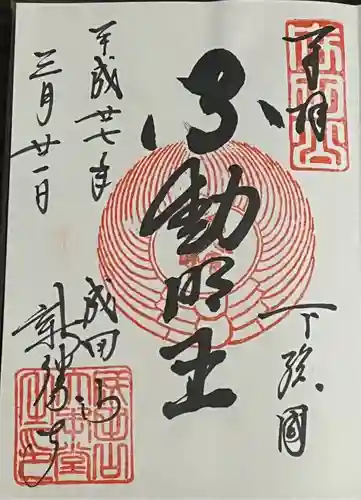 奉拝
下総國
不動明王
平成廿七年
三月廿一日
成田山
新勝寺